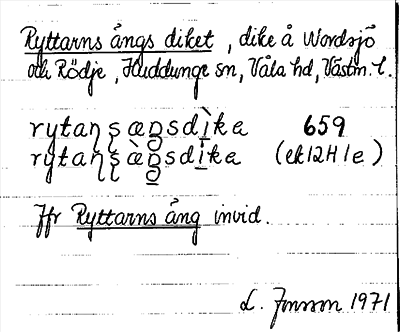 Ryttarns ångs diket, dike å Wordsjö
och Rödje, Huddunge sn, Våla hd, Västm. l.
rytaɳʂæŋsdìka 659
rytaɳʂæ̀ŋsdika (ek12H1e)
Jfr Ryttarns äng invid.
L. Jonsson 1971